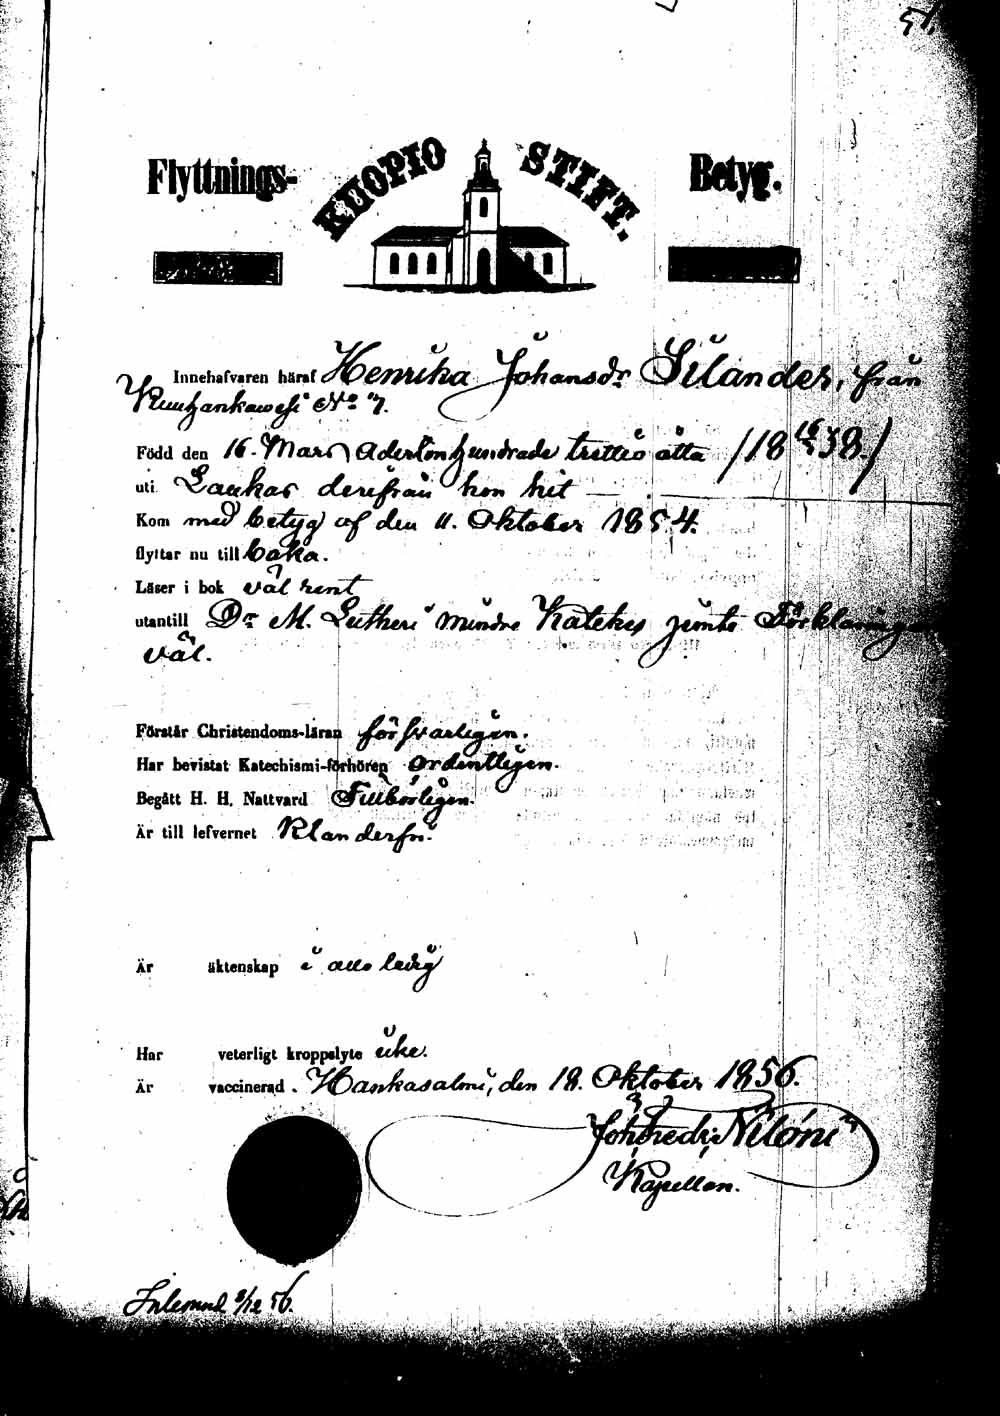 51.
Flyttnings- KUOPIO STIFT. Betyg.
Innehafvaren häraf Henrika Johansdr Silander, från
Kuuhankawesi No 7.
Född den 16. Mars Adertonhundrade trettio åtta /18 16/3 38./
uti Laukas derifrån hon hit
Kom med betyg af den 11. Oktober 1854.
flyttar nu till baka.
Läser i bok väl rent
utantill Dr M. Lutheri mindre Kateches jemte Förklaringen
väl.
Förstår Christendoms-läran försvarligen.
Har bevistat Katechismi-förhören ordentligen.
Begått H. H. Nattvard Tillbörligen.
Är till lefvernet Klanderfri.
Är äktenskap i allo ledig
Har veterligt kroppslyte icke.
Är vaccinerad. Hankasalmi, den 18. Oktober 1856.
Joh: Fredr: Niloni
Kapellan.
Inlemnad 8/12 56.